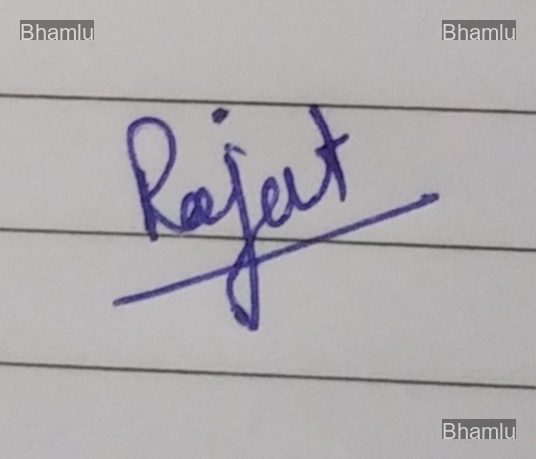 Bhamlu Bhamlu
Rajat
Bhamlu